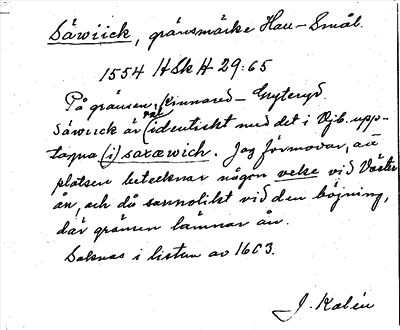 Säwiick, gränsmärke Hall-Smål.
1554 HSH 29:65
På gränsen, Kinnared - Gryteryd
Säwiick är identiskt med det i Njb. upp-
tagna (i) saxæwich. Jag förmodar, att
platsen betecknar någon vekse vid Väster
ån, och då sannolikt vid den böjning,
där gränsen lämnar ån.
Saknas i listan av 1603.
J. Kalén